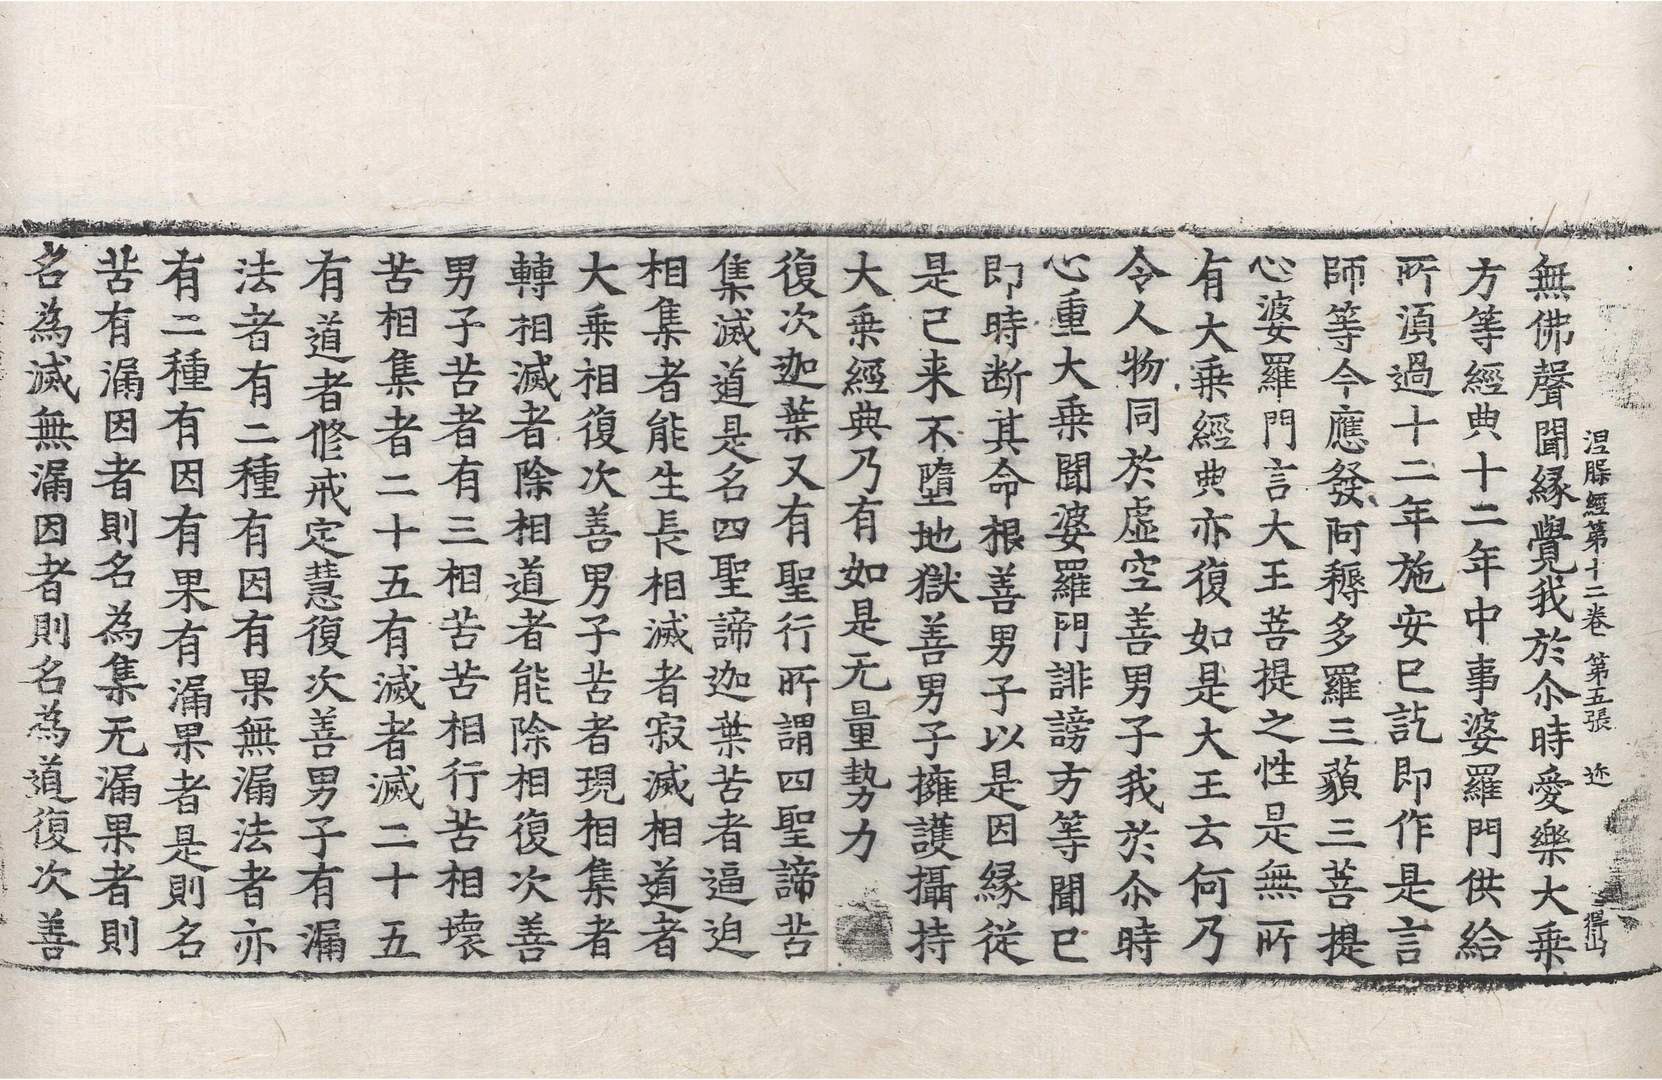 涅槃經第十二卷 第五張 迩 得山
無佛聲聞緣覺我於尒時愛樂大乗
方等經典十二年中事婆羅門供給
所湏過十二年施安已訖即作是言
師等今應發阿耨多羅三藐三菩提
心婆羅門言大王菩提之性是無所
有大乗經典亦復如是大王云何乃
令人物同於虛空善男子我於尒時
心重大乗聞婆羅門誹謗方等聞已
即時断其命根善男子以是因緣従
是已来不墮地獄善男子擁護攝持
大乗經典乃有如是无量勢力
復次迦葉又有聖行所謂四聖諦苦
集滅道是名四聖諦迦葉苦者逼迫
相集者能生長相滅者寂滅相道者
大乗相復次善男子苦者現相集者
轉相滅者除相道者能除相復次善
男子苦者有三相苦苦相行苦相壞
苦相集者二十五有滅者滅二十五
有道者修戒定慧復次善男子有漏
法者有二種有因有果無漏法者亦
有二種有因有果有漏果者是則名
苦有漏因者則名為集无漏果者則
名為滅無漏因者則名為道復次善